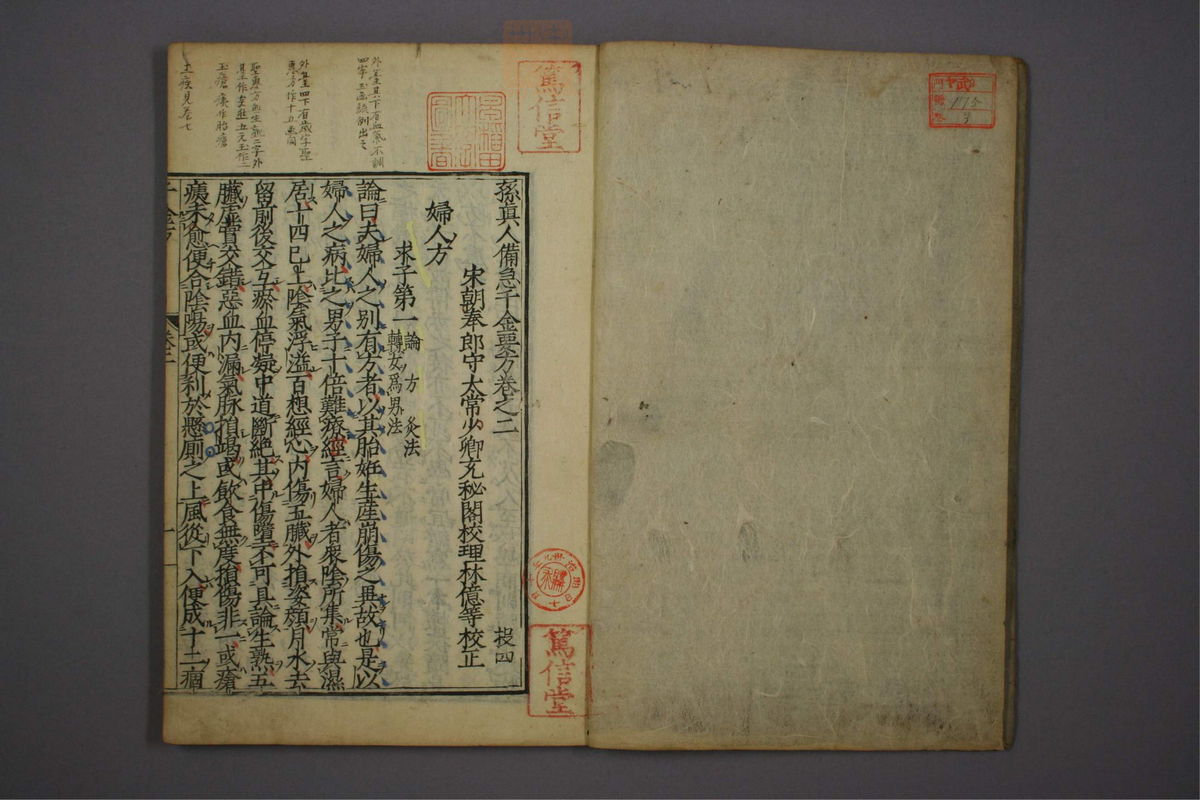 孫真人備急千金要方卷之二 投四
宋朝奉郎守太常少卿充秘閣校理林億等校正
婦人方
求子第一 論 方 灸法
轉女爲男法
論曰夫婦人之別有方者以其胎姙生産崩傷之異故也是以
婦人之病比之男子十倍難療經言婦人者衆陰所集常與濕
居十四已上陰氣浮溢百想經心内傷五臟外損姿顔月水去
留前後交互瘀血停凝中道斷絶其中傷墮不可具論生熟五
臟虚實交錯惡血内漏氣脉損竭或飲食無度損傷非一或瘡
痍未愈便合陰陽或便利於懸厠之上風從下入便成十二痼
篤信堂
篤信堂
早稲田
文庫
圖書
外臺其下有血氣不調
外臺四下有歳字聖
惠方作十五
十二疾見卷七